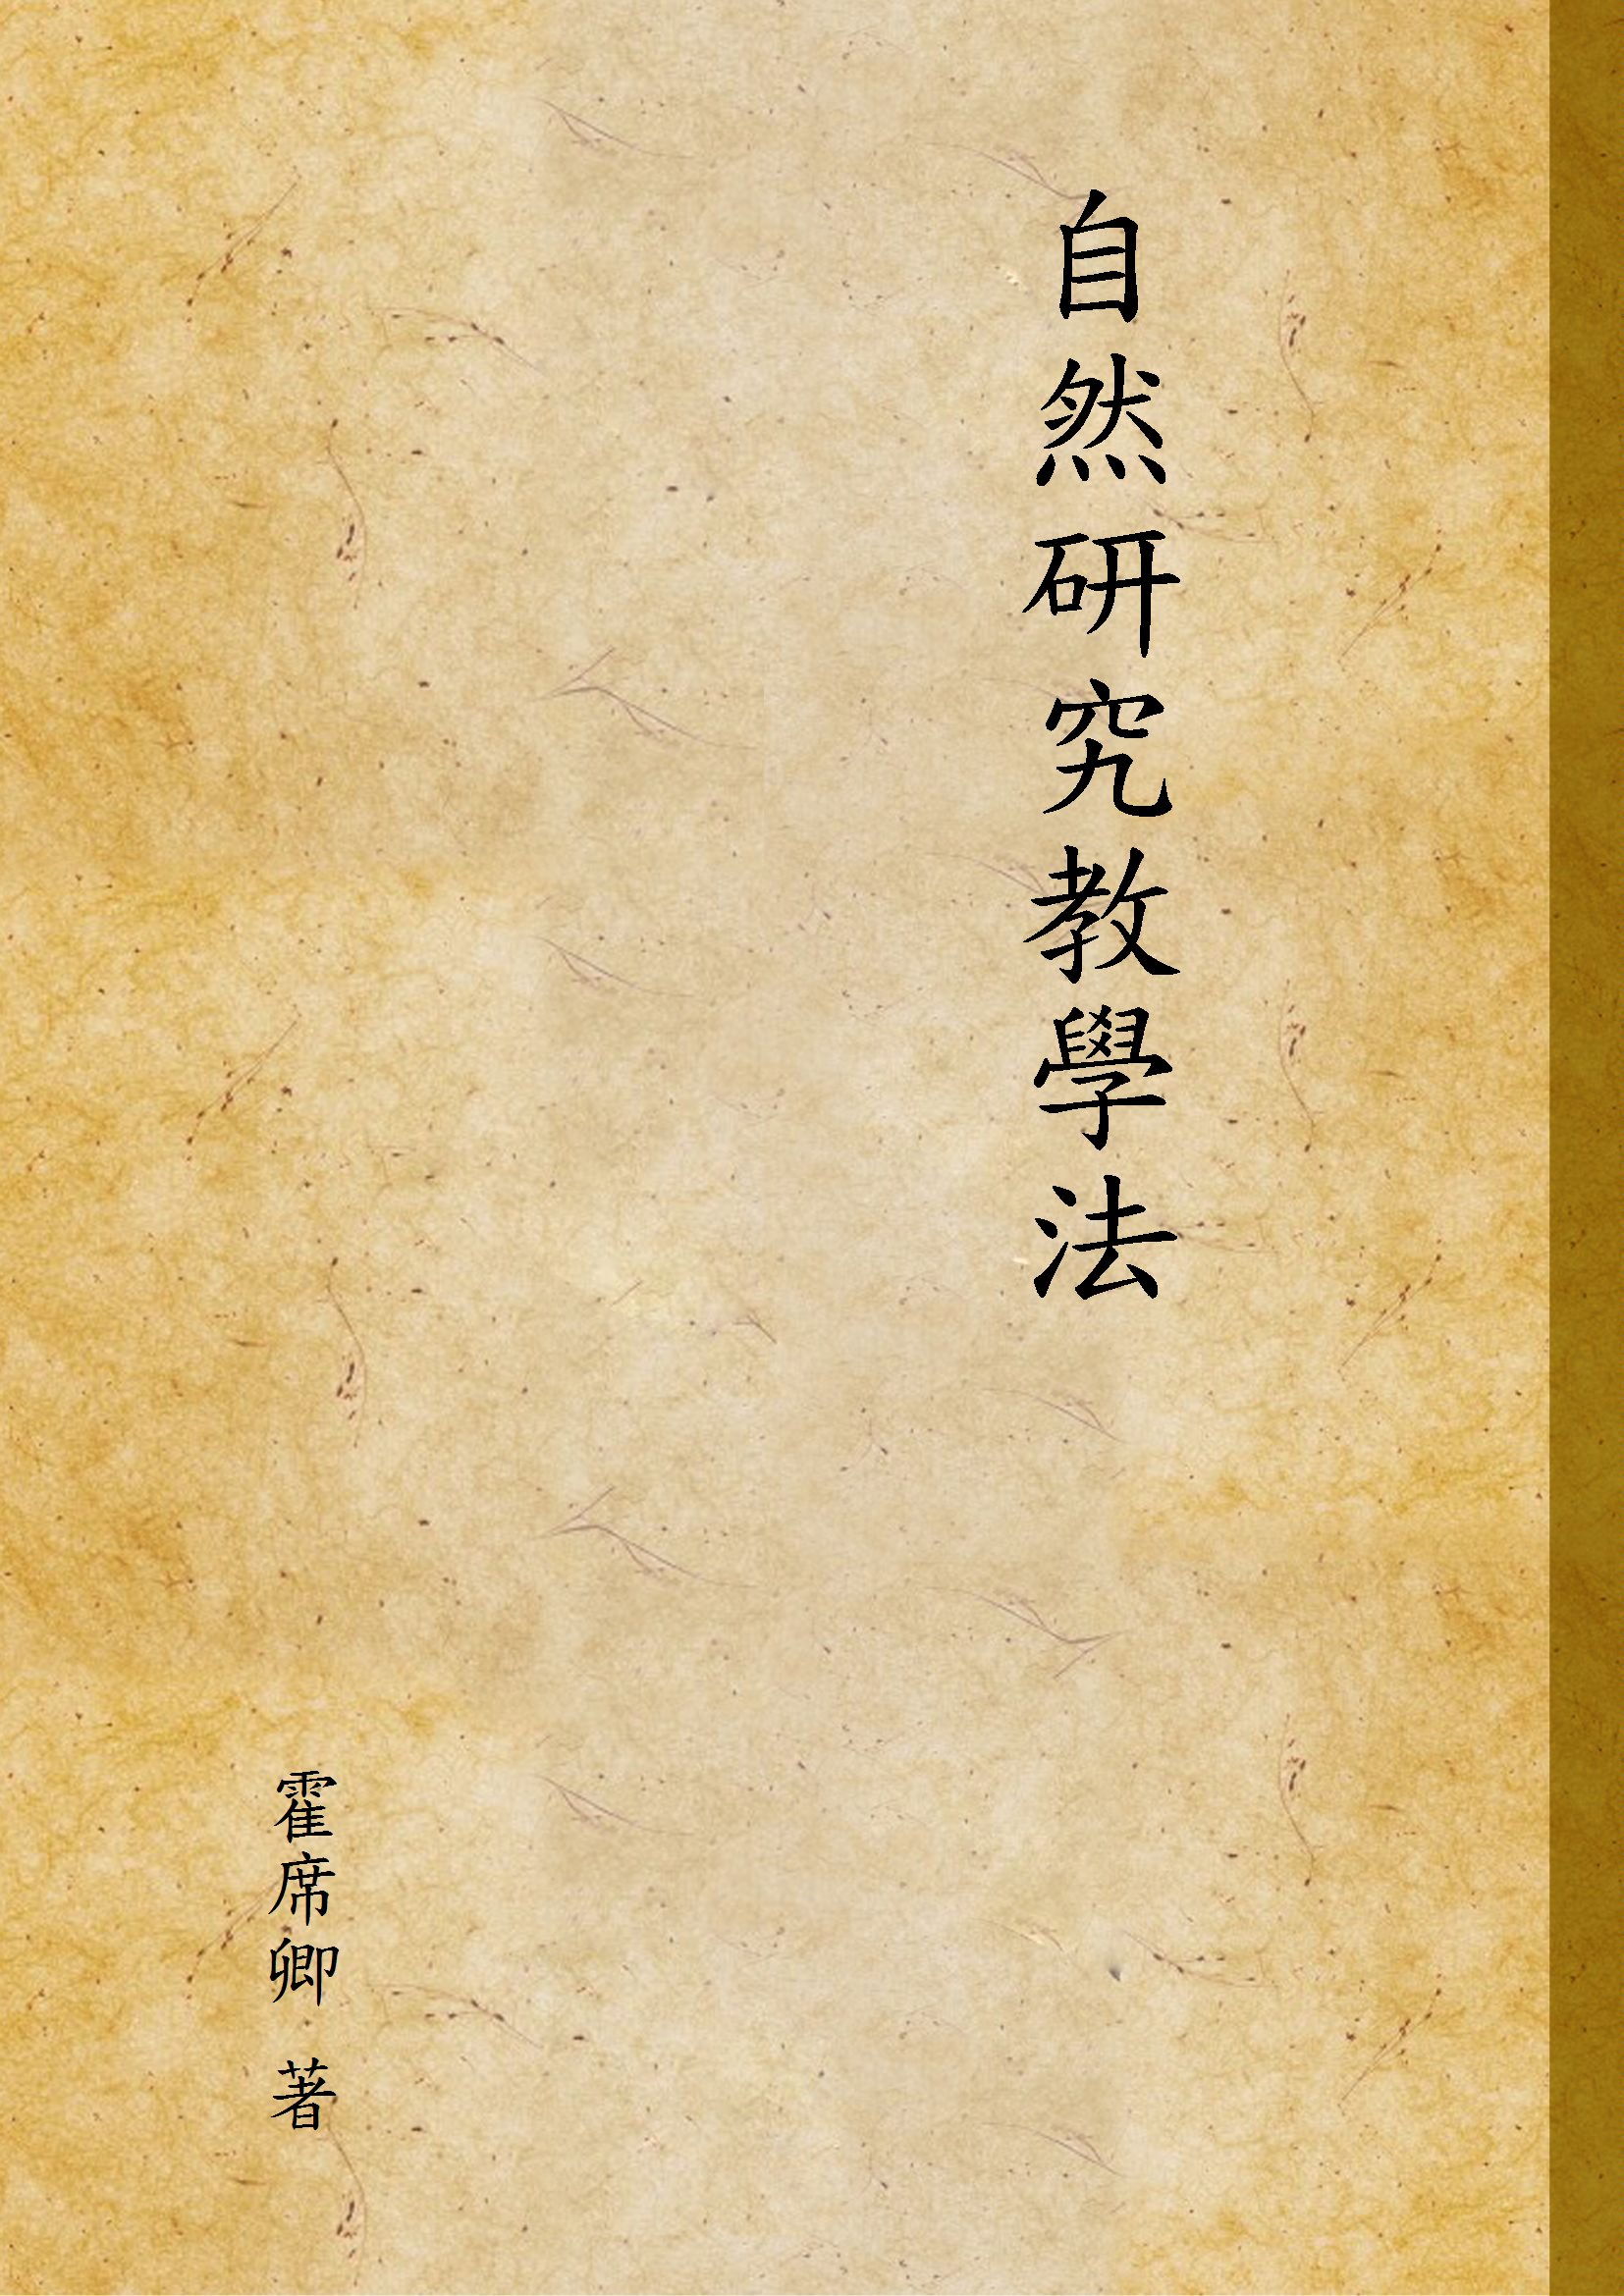 自然研究教學法
霍席卿 著